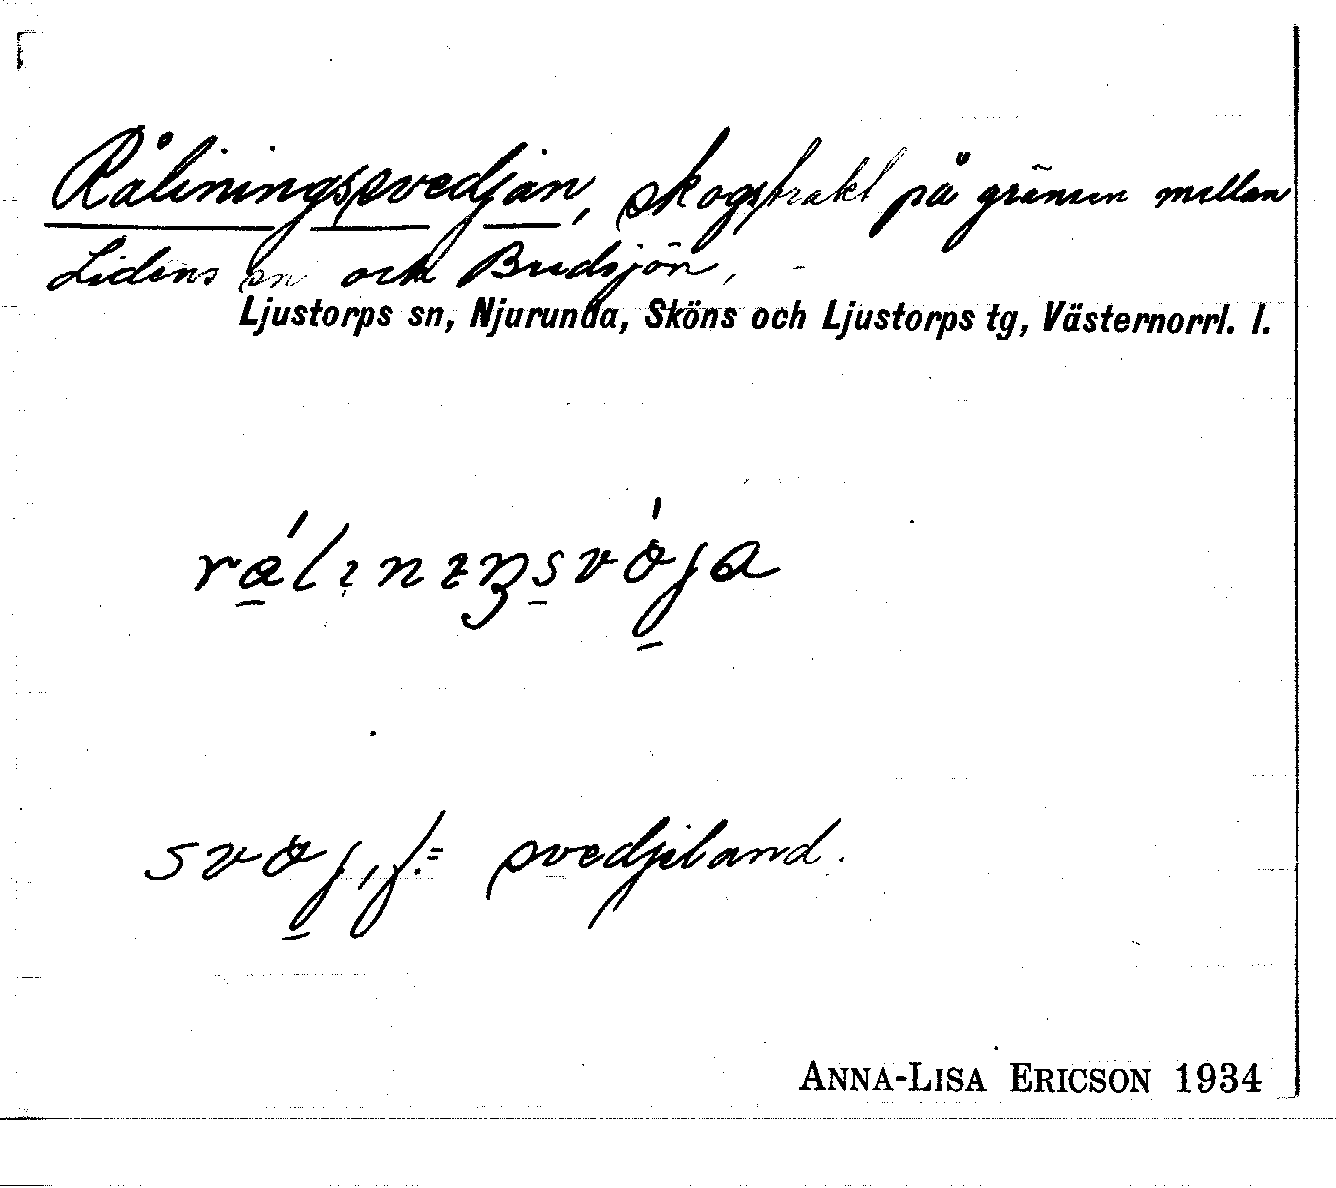 Råliningssvedjan, skogstrakt på gränsen mellan
Lidens sn och Bredsjön,
Ljustorps sn, Njurunda, Sköns och Ljustorps tg, Västernorrl. l.
svöj, f. = svedjeland.
ANNA-LISA ERICSON 1934